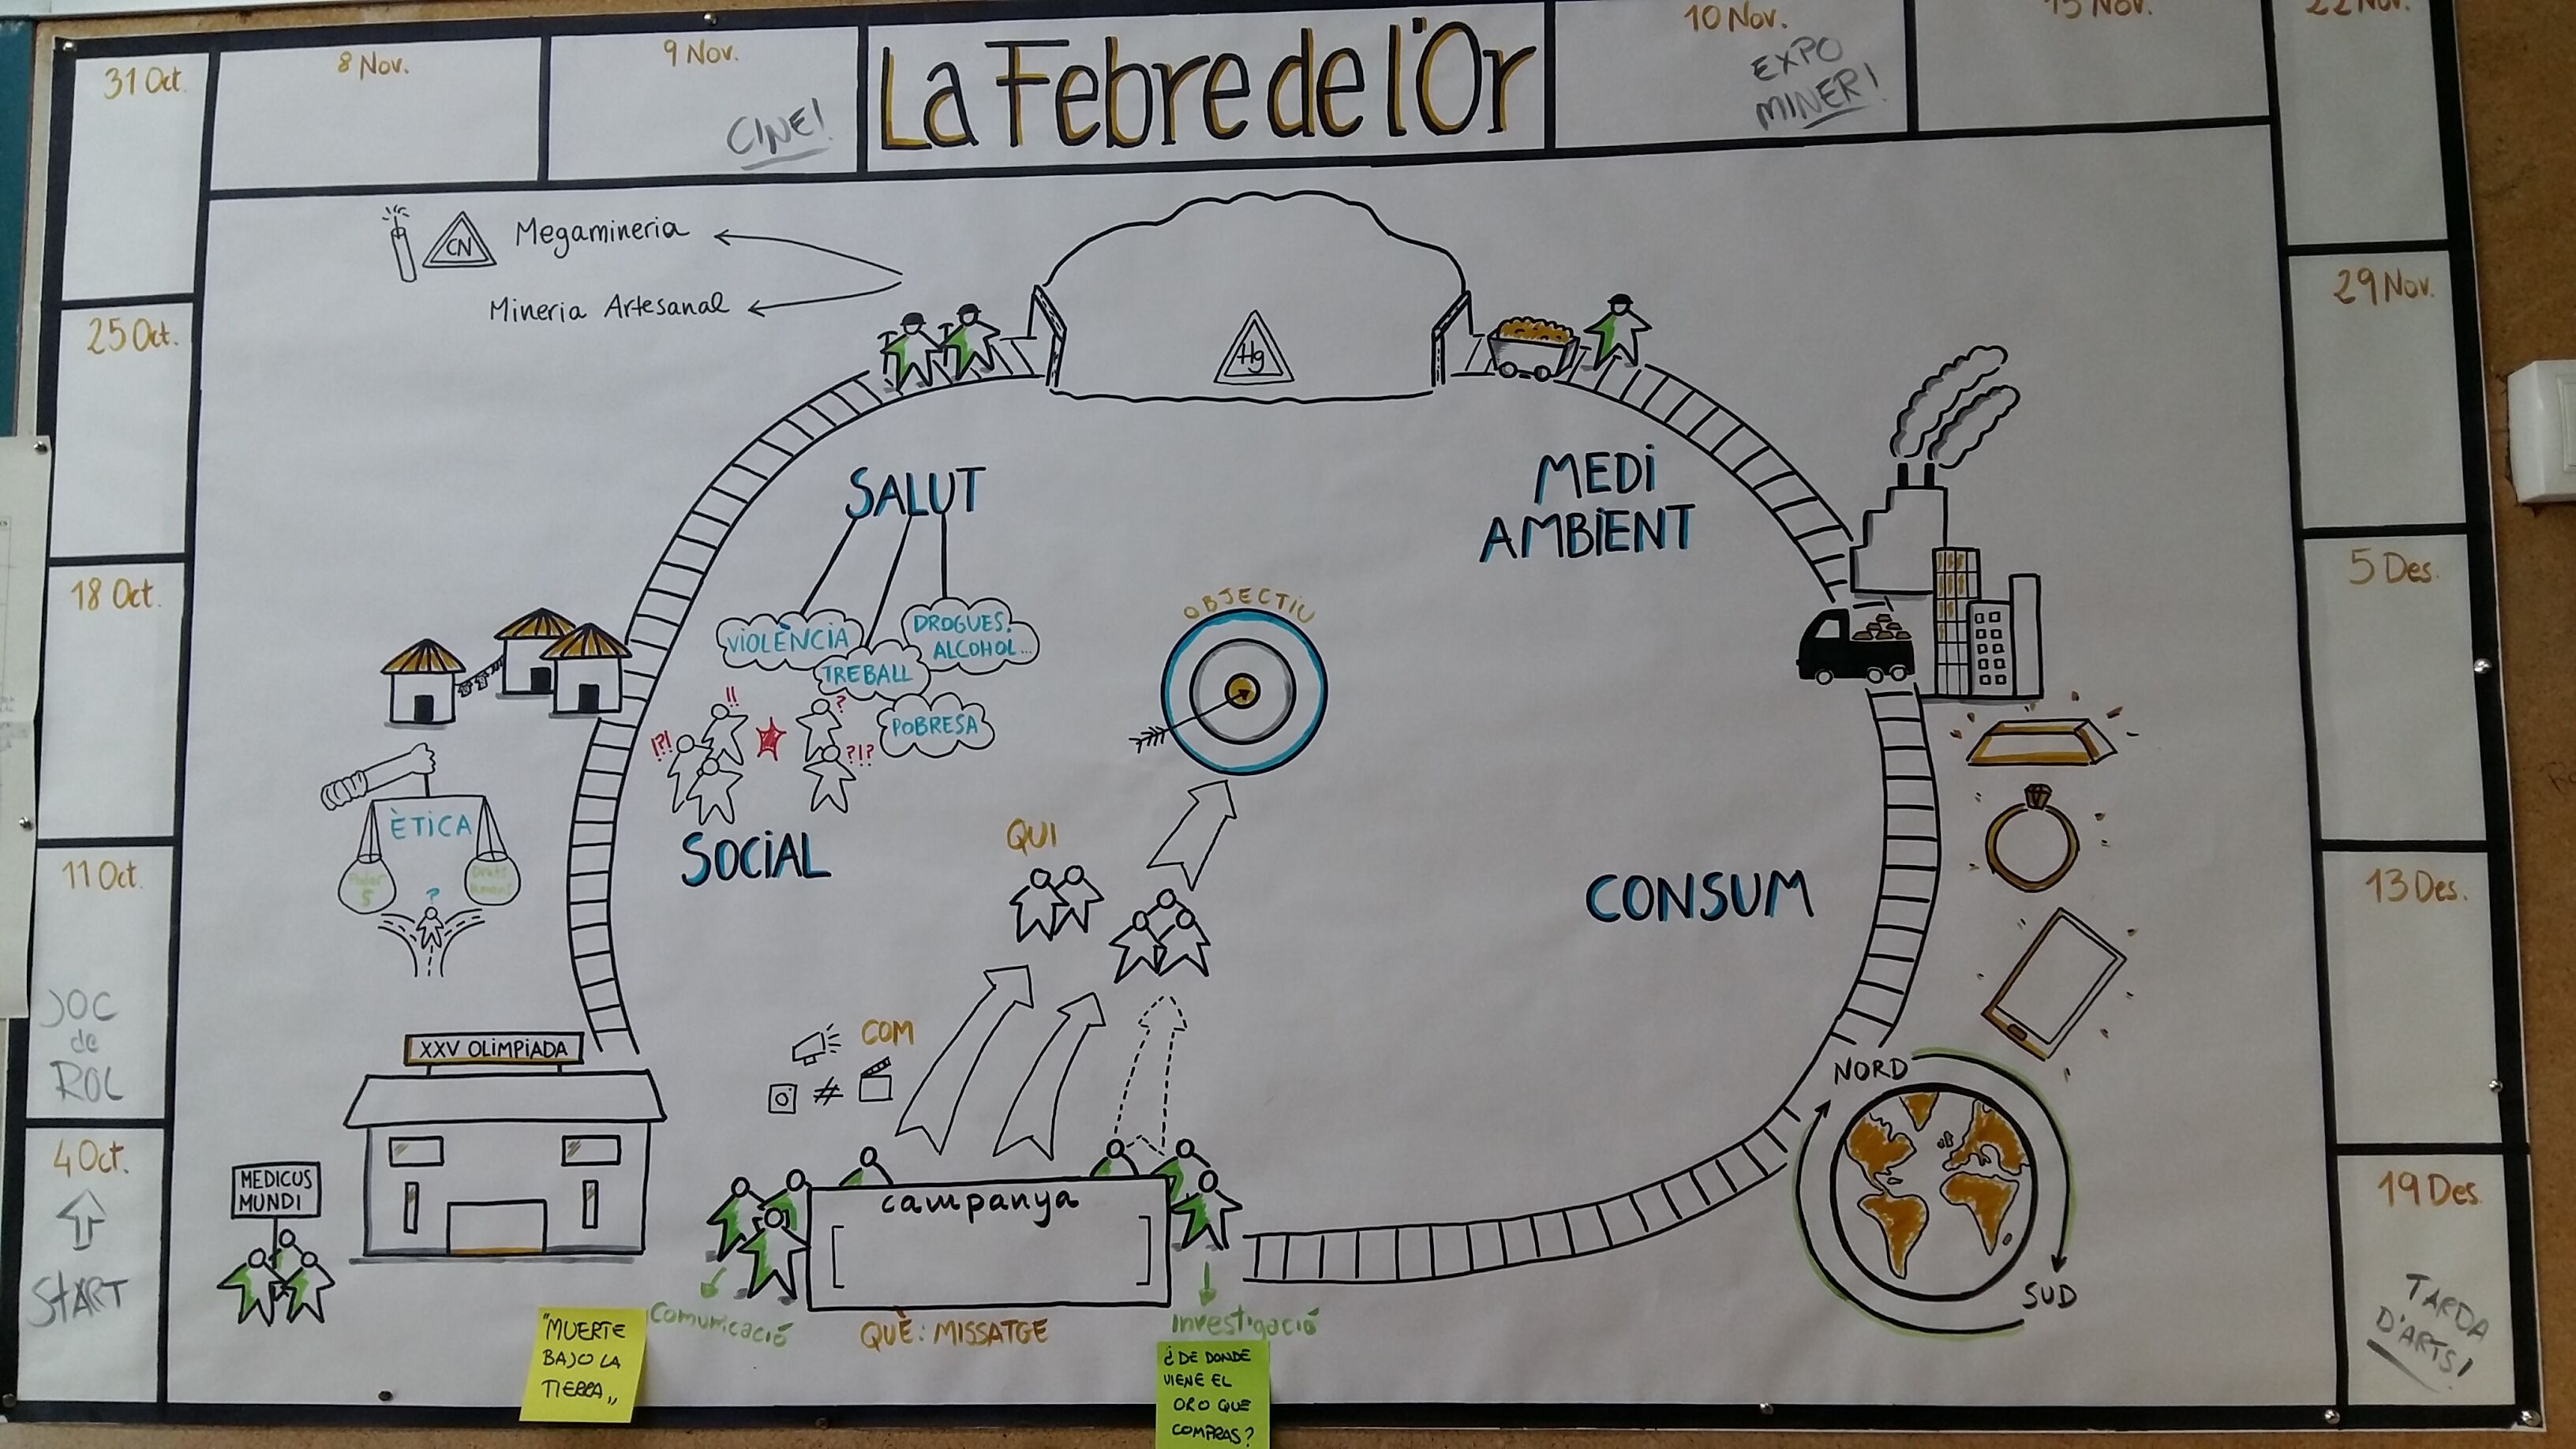 31 Oct.
8 Nov.
9 Nov.
CINE!
La Febre de l'Or
10 Nov.
EXPO
MINER!
15 Nov.
22 Nov.
25 Oct.
29 Nov.
18 Oct.
5 Des.
11 Oct.
JOC
de
ROL
13 Des.
4 Oct.
START
19 Des.
TARDA
D'ARTS!
CN
Megamineria
Mineria Artesanal
Hg
SALUT
MEDI
AMBIENT
VIOLÈNCIA
DROGUES!
ALCOHOL...
TREBALL
POBRESA
!!
?
!?!
?!?
OBJECTIU
ÈTICA
?
SOCIAL
QUI
CONSUM
COM
#
XXV OLIMPIADA
MEDICUS
MUNDI
campanya
[ ]
NORD
SUD
Comunicació
QUÈ: MISSATGE
Investigació
"MUERTE
BAJO LA
TIERRA"
¿DE DONDE
VIENE EL
ORO QUE
COMPRAS?